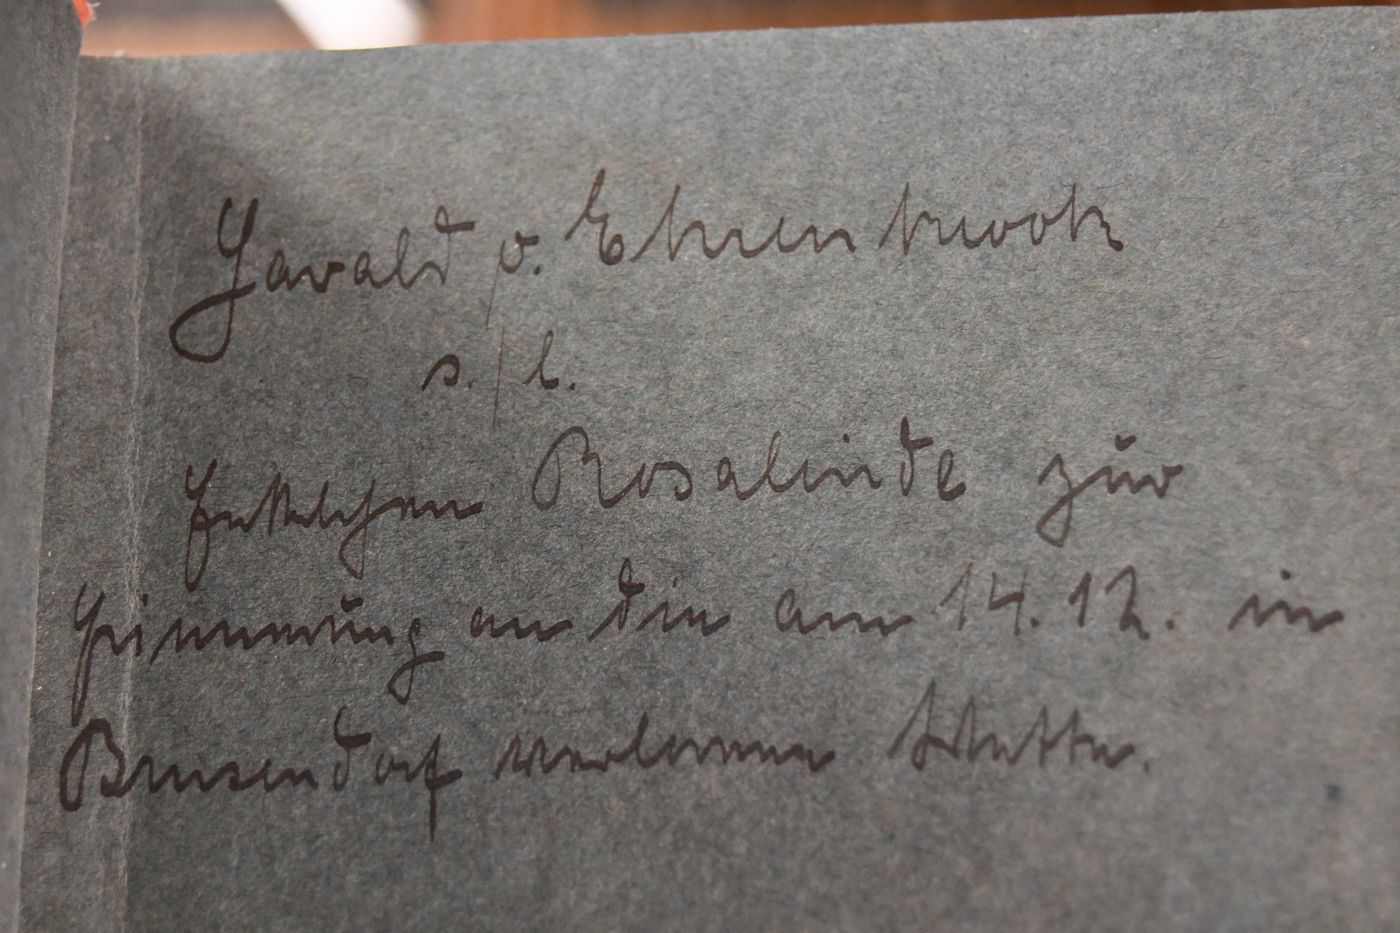 Harald v. Ehrenkrook
s./l.
Rosalinde zur
Erinnerung an die am 14.12. in
Brusendorf verlorene Wette.